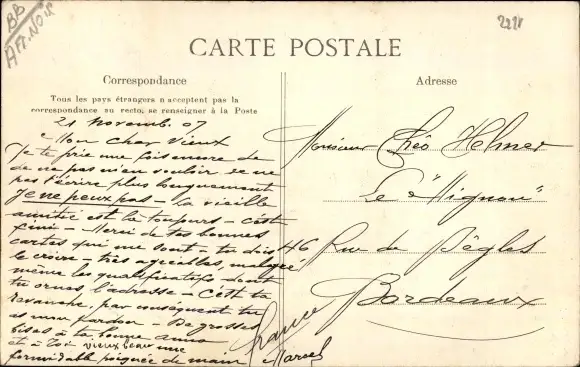 BB
AFF. NOIR
2221
CARTE POSTALE
Correspondance
Tous les pays étrangers n'acceptent pas la
correspondance au recto, se renseigner à la Poste
Adresse
21 Novemb. 07
Mon cher Vieux
Je te prie une fois encore de
de ne pas m'en vouloir de ne
pas t'écrire plus longuement
Je ne peux pas - la vieille
amitié est là toujours - c'est
fini - Merci de tes bonnes
cartes qui me sont - tu dois
le croire - très agréables, malgré
même les qualificatifs dont
tu ornes l'adresse - C'est ta
revanche, par conséquent tu
as mon pardon - De grosses
bises à ta bonne
et à toi vieux beau une
formidable poignée de main
Marcel
Monsieur Théo Helmer
Le "Mignon"
46 Rue de Bègles
Bordeaux
France